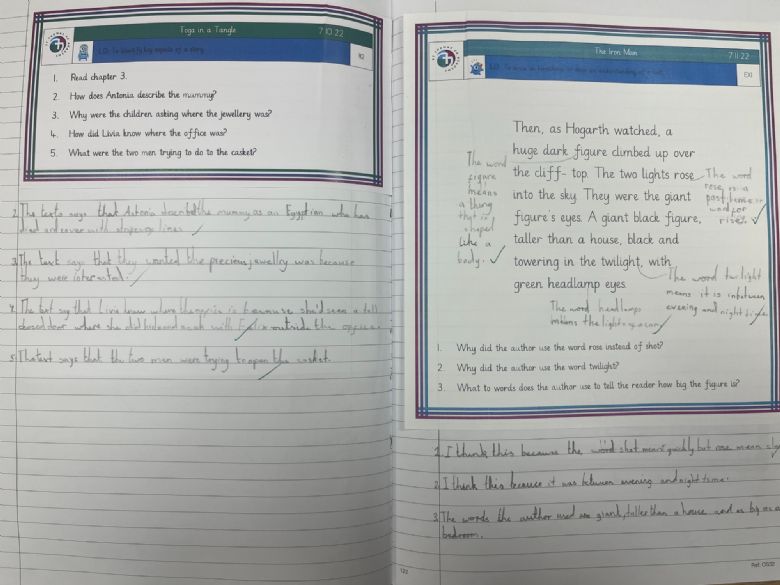 Toga in a Tangle 7.10.22
LO: To identify key aspects of a story.
R2
1. Read chapter 3.
2. How does Antonia describe the mummy?
3. Why were the children asking where the jewellery was?
4. How did Livia know where the office was?
5. What were the two men trying to do to the casket?
2. The texts says that Antonia the mummy as an Egyptian who has
died and cover with linen
3. The text says that they wanted the precious jewellry was because
they were interested.
4. The text say that Livia know where the office is because she'd seen a tall
closed door where she did hide and seek with Felix outside the office
5. The text says that the two men were trying to open the casket.
The Iron Man 7.11.22
EX1
Then, as Hogarth watched, a
huge dark figure climbed up over
the cliff-top. The two lights rose
into the sky. They were the giant
figure's eyes. A giant black figure,
taller than a house, black and
towering in the twilight, with
green headlamp eyes.
The word
figure
means
a thing
that is
shaped
like a
body.
The word
rose is a
past tense
word for
rise.
The word twilight
means it is inbetween
evening and night
The word headlamps
means the light
1. Why did the author use the word rose instead of shot?
2. Why did the author use the word twilight?
3. What to words does the author use to tell the reader how big the figure is?
I think this because the word shot means quickly but rose mean
2. I think this because it was between evening and night time.
3. The words the author used are giant, taller than a house and as big as a
bedroom.
122